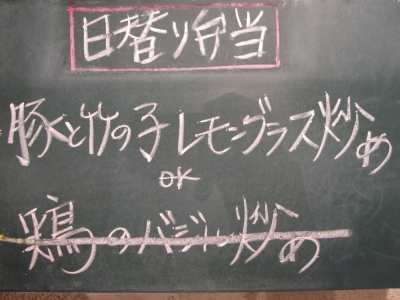 日替り弁当
豚と竹の子レモングラス炒め
OR
鶏のバジル炒め